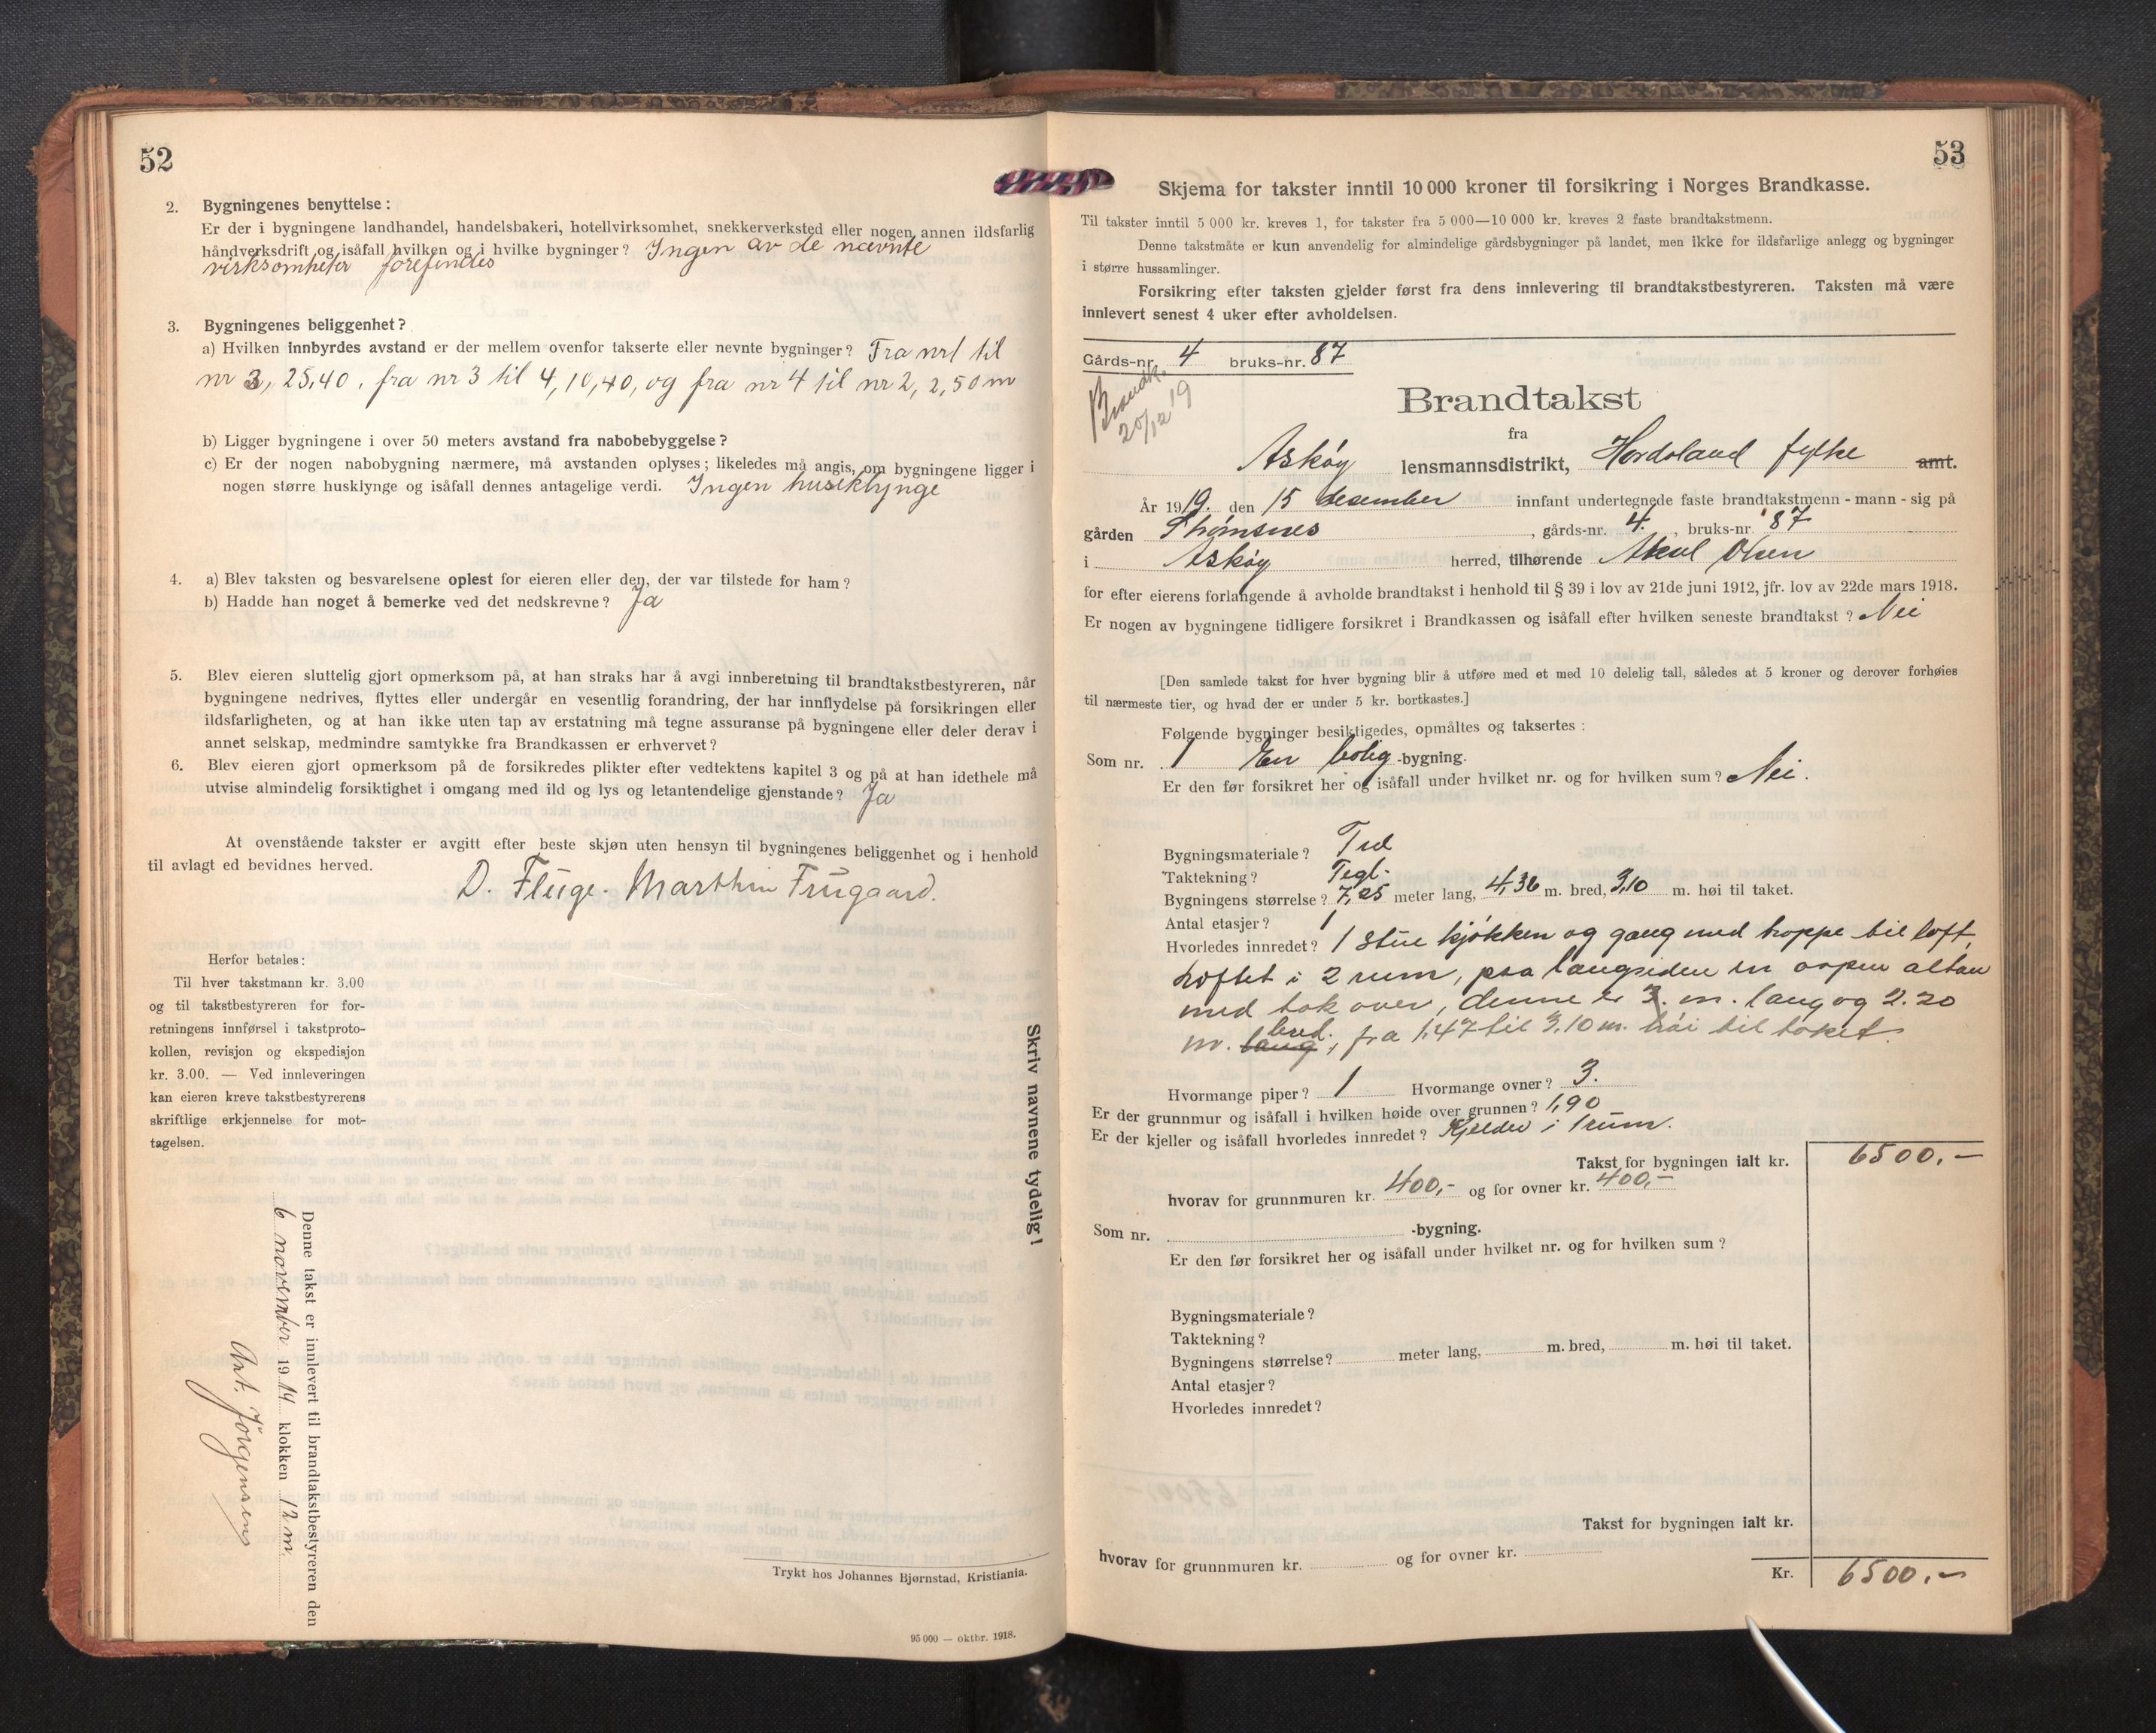 52
2. Bygningenes benyttelse:
Er der i bygningene landhandel, handelsbakeri, hotellvirksomhet, snekkerverksted eller nogen annen ildsfarlig
håndverksdrift og isåfall hvilken og i hvilke bygninger? Ingen av de nævnte
virksomheter forefindes
3. Bygningenes beliggenhet?
a) Hvilken innbyrdes avstand er der mellem ovenfor takserte eller nevnte bygninger? Fra nr 1 til
nr 3, 25,40, fra nr 3 til 4, 10,40, og fra nr 4 til nr 2, 2,50 m
b) Ligger bygningene i over 50 meters avstand fra nabobebyggelse?
c) Er der nogen nabobygning nærmere, må avstanden oplyses; likeledes må angis, om bygningene ligger i
nogen større husklynge og isåfall dennes antagelige verdi. Ingen huseklynge
4. a) Blev taksten og besvarelsene oplest for eieren eller den, der var tilstede for ham?
b) Hadde han noget å bemerke ved det nedskrevne? Ja
5. Blev eieren sluttelig gjort opmerksom på, at han straks har å avgi innberetning til brandtakstbestyreren, når
bygningene nedrives, flyttes eller undergår en vesentlig forandring, der har innflydelse på forsikringen eller
ildsfarligheten, og at han ikke uten tap av erstatning må tegne assuranse på bygningene eller deler derav i
annet selskap, medmindre samtykke fra Brandkassen er erhvervet?
6. Blev eieren gjort opmerksom på de forsikredes plikter efter vedtektens kapitel 3 og på at han idethele må
utvise almindelig forsiktighet i omgang med ild og lys og letantendelige gjenstande? Ja
At ovenstående takster er avgitt efter beste skjøn uten hensyn til bygningenes beliggenhet og i henhold
til avlagt ed bevidnes herved.
D. Fluge. Marthin Trugaard.
Herfor betales:
Til hver takstmann kr. 3.00
og til takstbestyreren for for-
retningens innførsel i takstproto-
kollen, revisjon og ekspedisjon
kr. 3.00. — Ved innleveringen
kan eieren kreve takstbestyrerens
skriftlige erkjennelse for mot-
tagelsen.
Skriv navnene tydelig!
Denne takst er innlevert til brandtakstbestyreren den
6 november 1914 klokken 12 m.
Ant. Jörgensen
Trykt hos Johannes Bjørnstad, Kristiania.
95 000 — oktbr. 1918.
53
Skjema for takster inntil 10 000 kroner til forsikring i Norges Brandkasse.
Til takster inntil 5 000 kr. kreves 1, for takster fra 5 000—10 000 kr. kreves 2 faste brandtakstmenn.
Denne takstmåte er kun anvendelig for almindelige gårdsbygninger på landet, men ikke for ildsfarlige anlegg og bygninger
i større hussamlinger.
Forsikring efter taksten gjelder først fra dens innlevering til brandtakstbestyreren. Taksten må være
innlevert senest 4 uker efter avholdelsen.
Gårds-nr. 4 bruks-nr. 87
Brandk.
20/12 19
Brandtakst
fra
Askøy lensmannsdistrikt, Hordaland fylke amt.
År 1919. den 15 desember innfant undertegnede faste brandtakstmenn - mann - sig på
gården Strømsnes, gårds-nr. 4, bruks-nr. 87
i Askøy herred, tilhørende Olsen
for efter eierens forlangende å avholde brandtakst i henhold til § 39 i lov av 21de juni 1912, jfr. lov av 22de mars 1918.
Er nogen av bygningene tidligere forsikret i Brandkassen og isåfall efter hvilken seneste brandtakst? Nei
[Den samlede takst for hver bygning blir å utføre med et med 10 delelig tall, således at 5 kroner og derover forhøies
til nærmeste tier, og hvad der er under 5 kr. bortkastes.]
Følgende bygninger besiktigedes, opmåltes og taksertes:
Som nr. 1 En bolig-bygning.
Er den før forsikret her og isåfall under hvilket nr. og for hvilken sum? Nei.
Bygningsmateriale? Træ
Taktekning? Tegl.
Bygningens størrelse? 7,25 meter lang, 4,36 m. bred, 3,10 m. høi til taket.
Antal etasjer? 1
Hvorledes innredet? 1 stue kjøkken og gang med trappe til loft,
Loftet i 2 rum, paa langsiden en aapen altan
med tak over, denne er 3. m. lang og 2.20
m. lang bred., fra 1,47 til 3,10 m. høi til taket.
Hvormange piper? 1 Hvormange ovner? 3.
Er der grunnmur og isåfall i hvilken høide over grunnen? 1,90
Er der kjeller og isåfall hvorledes innredet? Kjelder i 1 rum.
Takst for bygningen ialt kr. 6500.-
hvorav for grunnmuren kr. 400,- og for ovner kr. 400,-
Som nr. -bygning.
Er den før forsikret her og isåfall under hvilket nr. og for hvilken sum?
Bygningsmateriale?
Taktekning?
Bygningens størrelse? meter lang, m. bred, m. høi til taket.
Antal etasjer?
Hvorledes innredet?
Takst for bygningen ialt kr.
hvorav for grunnmuren kr. og for ovner kr.
Kr. 6500.-